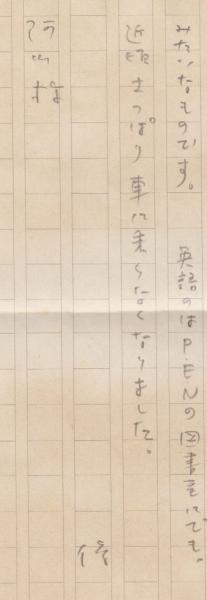 みたいなものです。　英語のはP.E.Nの図書室にでも。
近頃さっぱり車に乗らなくなりました。
修
様